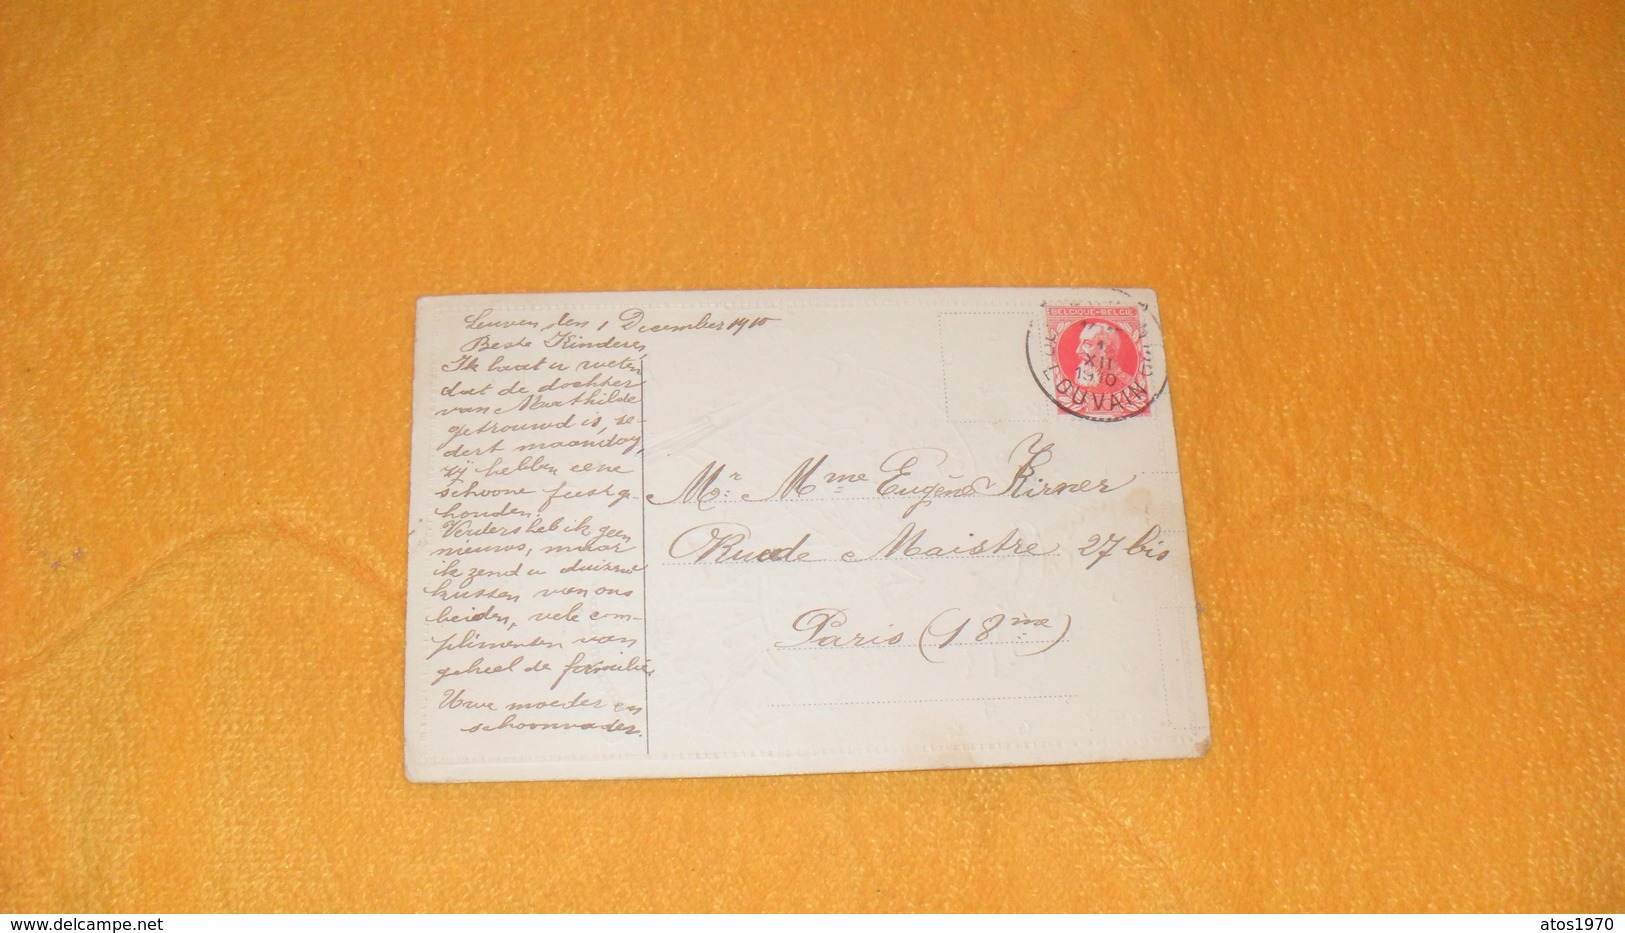 Leuven den 1 December 1910
Beste Kinderen,
Ik laat u weten
dat de dochter
van Mathilde
getrouwd is, se-
dert maandag,
zij hebben eene
schoone feest g-
houden.
Verders heb ik geen
nieuws, maar
ik zend u duizend
kussen van ons
beiden, vele com-
plimenten van
geheel de familie
Uwe moeder en
schoonvader.
BELGIQUE-BELGIE
1
XII
1910
LOUVAIN
Mr. Mme Eugène Kirner
Rue de Maistre 27 bis
Paris (18me)
delcampe.net
atos1970